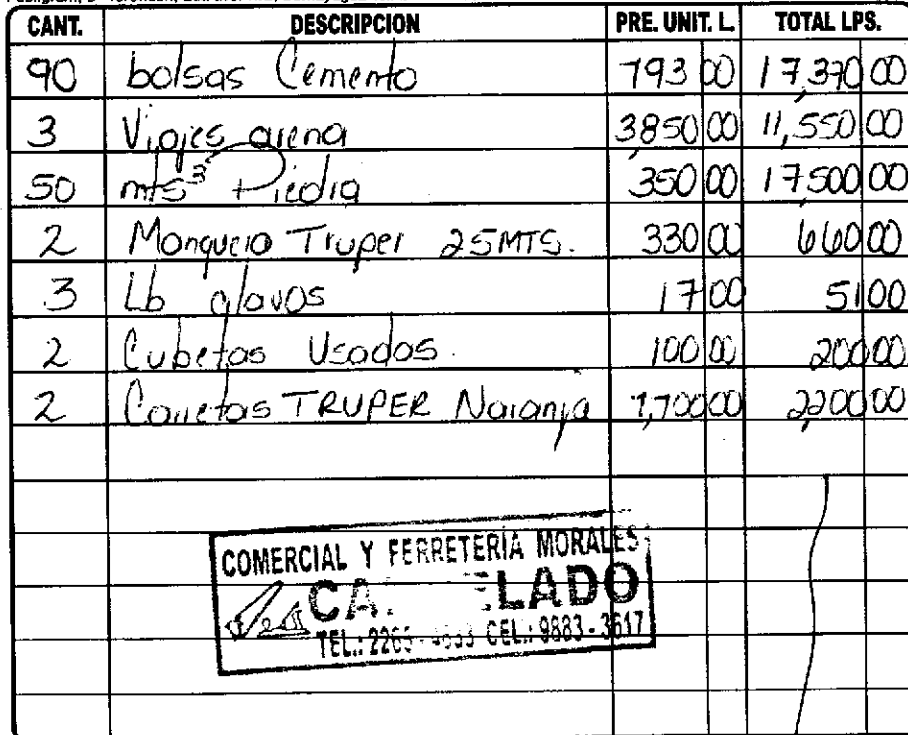 CANT. DESCRIPCION PRE. UNIT. L. TOTAL LPS.
90 bolsas Cemento 193 00 17,370 00
3 Viajes arena 3,850 00 11,550 00
50 mts³ Piedra 350 00 17,500 00
2 Manguera Truper 25MTS. 330 00 660 00
3 Lb clavos 17 00 51 00
2 Cubetas Usadas. 100 00 200 00
2 Carretas TRUPER Naranja 1,100 00 2,200 00
COMERCIAL Y FERRETERÍA MORALES
CA ELADO
TEL.: CEL.: 9883-3617